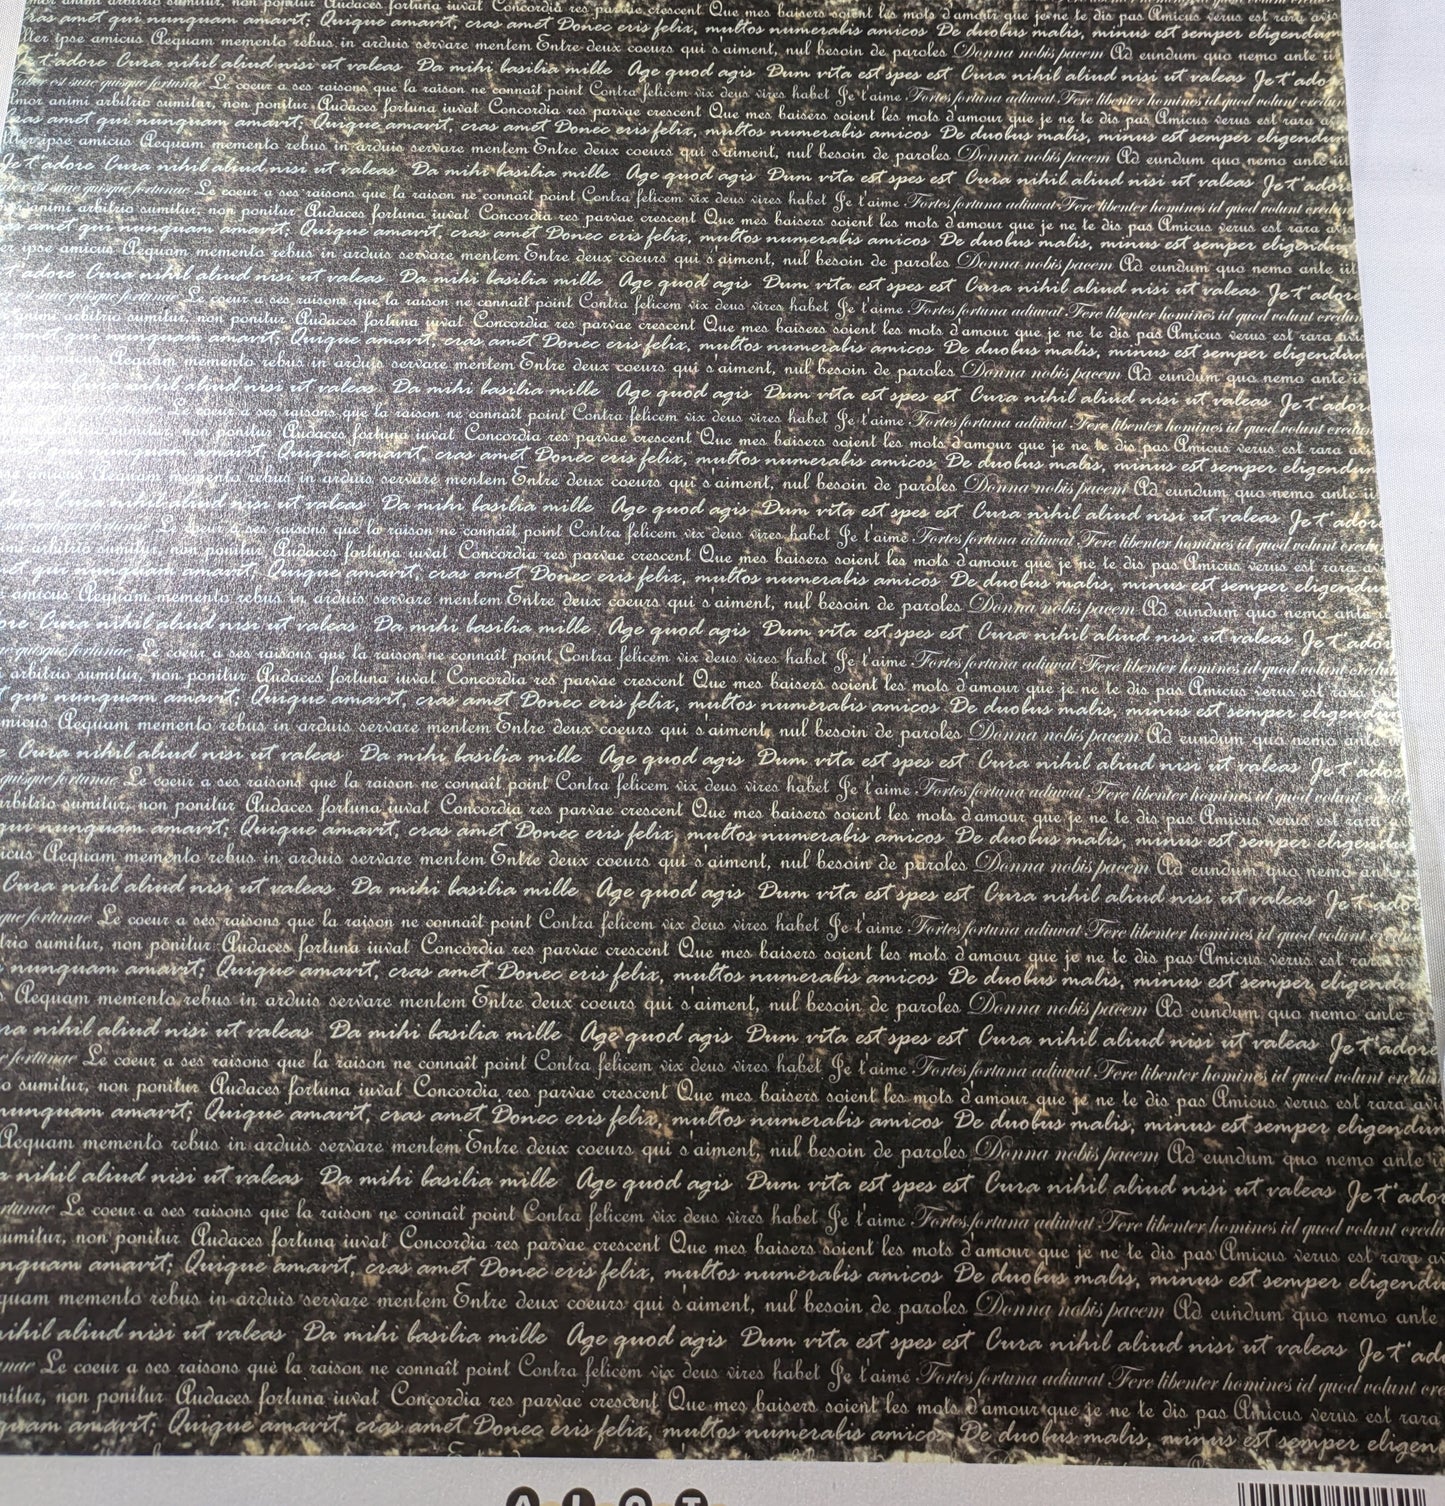 animi arbitrio sumitur, non ponitur Audaces fortuna iuvat Concordia res parvae crescent Que mes baisers soient les mots d'amour que je ne te dis pas Amicus verus est rara avis
cras amet qui nunquam amavit; Quique amavit, cras amet Donec eris felix, multos numerabis amicos De duobus malis, minus est semper eligendum
ipse amicus Aequam memento rebus in arduis servare mentem Entre deux coeurs qui s'aiment, nul besoin de paroles Donna nobis pacem Ad eundum quo nemo ante
t'adore Cura nihil aliud nisi ut valeas Da mihi basilia mille Age quod agis Dum vita est spes est Cura nihil aliud nisi ut valeas Je t'ado
est suae quisque fortunae Le coeur a ses raisons que la raison ne connaît point Contra felicem vix deus vires habet Je t'aime Fortes fortuna adiuvat Fere libenter homines id quod volunt credun
Amor animi arbitrio sumitur, non ponitur Audaces fortuna iuvat Concordia res parvae crescent Que mes baisers soient les mots d'amour que je ne te dis pas Amicus verus est rara
ras amet qui nunquam amavit; Quique amavit, cras amet Donec eris felix, multos numerabis amicos De duobus malis, minus est semper eligendum
ipse amicus Aequam memento rebus in arduis servare mentem Entre deux coeurs qui s'aiment, nul besoin de paroles Donna nobis pacem Ad eundum quo nemo ante iit
Je t'adore Cura nihil aliud nisi ut valeas Da mihi basilia mille Age quod agis Dum vita est spes est Cura nihil aliud nisi ut valeas Je t'adore
ber est suae quisque fortunae Le coeur a ses raisons que la raison ne connaît point Contra felicem vix deus vires habet Je t'aime Fortes fortuna adiuvat Fere libenter homines id quod volunt credun
animi arbitrio sumitur, non ponitur Audaces fortuna iuvat Concordia res parvae crescent Que mes baisers soient les mots d'amour que je ne te dis pas Amicus verus est rara
s amet qui nunquam amavit; Quique amavit, cras amet Donec eris felix, multos numerabis amicos De duobus malis, minus est semper eligendum
er ipse amicus Aequam memento rebus in arduis servare mentem Entre deux coeurs qui s'aiment, nul besoin de paroles Donna nobis pacem Ad eundum quo nemo ante iit
t'adore Cura nihil aliud nisi ut valeas Da mihi basilia mille Age quod agis Dum vita est spes est Cura nihil aliud nisi ut valeas Je t'adore
est suae quisque fortunae Le coeur a ses raisons que la raison ne connaît point Contra felicem vix deus vires habet Je t'aime Fortes fortuna adiuvat Fere libenter homines id quod volunt credun
animi arbitrio sumitur, non ponitur Audaces fortuna iuvat Concordia res parvae crescent Que mes baisers soient les mots d'amour que je ne te dis pas Amicus verus est rara
amet qui nunquam amavit; Quique amavit, cras amet Donec eris felix, multos numerabis amicos De duobus malis, minus est semper eligendum
amicus Aequam memento rebus in arduis servare mentem Entre deux coeurs qui s'aiment, nul besoin de paroles Donna nobis pacem Ad eundum quo nemo ante
Cura nihil aliud nisi ut valeas Da mihi basilia mille Age quod agis Dum vita est spes est Cura nihil aliud nisi ut valeas Je t'adore
Le coeur a ses raisons que la raison ne connaît point Contra felicem vix deus vires habet Je t'aime Fortes fortuna adiuvat Fere libenter homines id quod volunt credun
arbitrio sumitur, non ponitur Audaces fortuna iuvat Concordia res parvae crescent Que mes baisers soient les mots d'amour que je ne te dis pas Amicus verus est rara
qui nunquam amavit; Quique amavit, cras amet Donec eris felix, multos numerabis amicos De duobus malis, minus est semper eligendum
amicus Aequam memento rebus in arduis servare mentem Entre deux coeurs qui s'aiment, nul besoin de paroles Donna nobis pacem Ad eundum quo nemo ante
Cura nihil aliud nisi ut valeas Da mihi basilia mille Age quod agis Dum vita est spes est Cura nihil aliud nisi ut valeas Je t'adore
quisque fortunae Le coeur a ses raisons que la raison ne connaît point Contra felicem vix deus vires habet Je t'aime Fortes fortuna adiuvat Fere libenter homines id quod volunt credun
arbitrio sumitur, non ponitur Audaces fortuna iuvat Concordia res parvae crescent Que mes baisers soient les mots d'amour que je ne te dis pas Amicus verus est rara
et qui nunquam amavit; Quique amavit, cras amet Donec eris felix, multos numerabis amicos De duobus malis, minus est semper eligendum
amicus Aequam memento rebus in arduis servare mentem Entre deux coeurs qui s'aiment, nul besoin de paroles Donna nobis pacem Ad eundum quo nemo ante
ore Cura nihil aliud nisi ut valeas Da mihi basilia mille Age quod agis Dum vita est spes est Cura nihil aliud nisi ut valeas Je t'ador
quisque fortunae Le coeur a ses raisons que la raison ne connaît point Contra felicem vix deus vires habet Je t'aime Fortes fortuna adiuvat Fere libenter homines id quod volunt credun
arbitrio sumitur, non ponitur Audaces fortuna iuvat Concordia res parvae crescent Que mes baisers soient les mots d'amour que je ne te dis pas Amicus verus est rara
t qui nunquam amavit; Quique amavit, cras amet Donec eris felix, multos numerabis amicos De duobus malis, minus est semper eligendum
micus Aequam memento rebus in arduis servare mentem Entre deux coeurs qui s'aiment, nul besoin de paroles Donna nobis pacem Ad eundum quo nemo ante
e Cura nihil aliud nisi ut valeas Da mihi basilia mille Age quod agis Dum vita est spes est Cura nihil aliud nisi ut valeas Je t'ador
quisque fortunae Le coeur a ses raisons que la raison ne connaît point Contra felicem vix deus vires habet Je t'aime Fortes fortuna adiuvat Fere libenter homines id quod volunt
arbitrio sumitur, non ponitur Audaces fortuna iuvat Concordia res parvae crescent Que mes baisers soient les mots d'amour que je ne te dis pas Amicus verus est rara
qui nunquam amavit; Quique amavit, cras amet Donec eris felix, multos numerabis amicos De duobus malis, minus est semper eligendum
icus Aequam memento rebus in arduis servare mentem Entre deux coeurs qui s'aiment, nul besoin de paroles Donna nobis pacem Ad eundum quo nemo ante
Cura nihil aliud nisi ut valeas Da mihi basilia mille Age quod agis Dum vita est spes est Cura nihil aliud nisi ut valeas Je t'ado
que fortunae Le coeur a ses raisons que la raison ne connaît point Contra felicem vix deus vires habet Je t'aime Fortes fortuna adiuvat Fere libenter homines id quod volunt
trio sumitur, non ponitur Audaces fortuna iuvat Concordia res parvae crescent Que mes baisers soient les mots d'amour que je ne te dis pas Amicus verus est rara
nunquam amavit; Quique amavit, cras amet Donec eris felix, multos numerabis amicos De duobus malis, minus est semper eligendum
s Aequam memento rebus in arduis servare mentem Entre deux coeurs qui s'aiment, nul besoin de paroles Donna nobis pacem Ad eundum quo nemo ante
ra nihil aliud nisi ut valeas Da mihi basilia mille Age quod agis Dum vita est spes est Cura nihil aliud nisi ut valeas Je t'adore
e fortunae Le coeur a ses raisons que la raison ne connaît point Contra felicem vix deus vires habet Je t'aime Fortes fortuna adiuvat Fere libenter homines id quod volunt credun
o sumitur, non ponitur Audaces fortuna iuvat Concordia res parvae crescent Que mes baisers soient les mots d'amour que je ne te dis pas Amicus verus est rara avis
nunquam amavit; Quique amavit, cras amet Donec eris felix, multos numerabis amicos De duobus malis, minus est semper eligendum
Aequam memento rebus in arduis servare mentem Entre deux coeurs qui s'aiment, nul besoin de paroles Donna nobis pacem Ad eundum quo nemo ante
a nihil aliud nisi ut valeas Da mihi basilia mille Age quod agis Dum vita est spes est Cura nihil aliud nisi ut valeas Je t'ado
rtunae Le coeur a ses raisons que la raison ne connaît point Contra felicem vix deus vires habet Je t'aime Fortes fortuna adiuvat Fere libenter homines id quod volunt credu
umitur, non ponitur Audaces fortuna iuvat Concordia res parvae crescent Que mes baisers soient les mots d'amour que je ne te dis pas Amicus verus est rara a
nquam amavit; Quique amavit, cras amet Donec eris felix, multos numerabis amicos De duobus malis, minus est semper eligendu
quam memento rebus in arduis servare mentem Entre deux coeurs qui s'aiment, nul besoin de paroles Donna nobis pacem Ad eundum quo nemo ante
ihil aliud nisi ut valeas Da mihi basilia mille Age quod agis Dum vita est spes est Cura nihil aliud nisi ut valeas Je t'ad
nae Le coeur a ses raisons que la raison ne connaît point Contra felicem vix deus vires habet Je t'aime Fortes fortuna adiuvat Fere libenter homines id quod volunt cre
nitur, non ponitur Audaces fortuna iuvat Concordia res parvae crescent Que mes baisers soient les mots d'amour que je ne te dis pas Amicus verus est rara
quam amavit; Quique amavit, cras amet Donec eris felix, multos numerabis amicos De duobus malis, minus est semper eligen